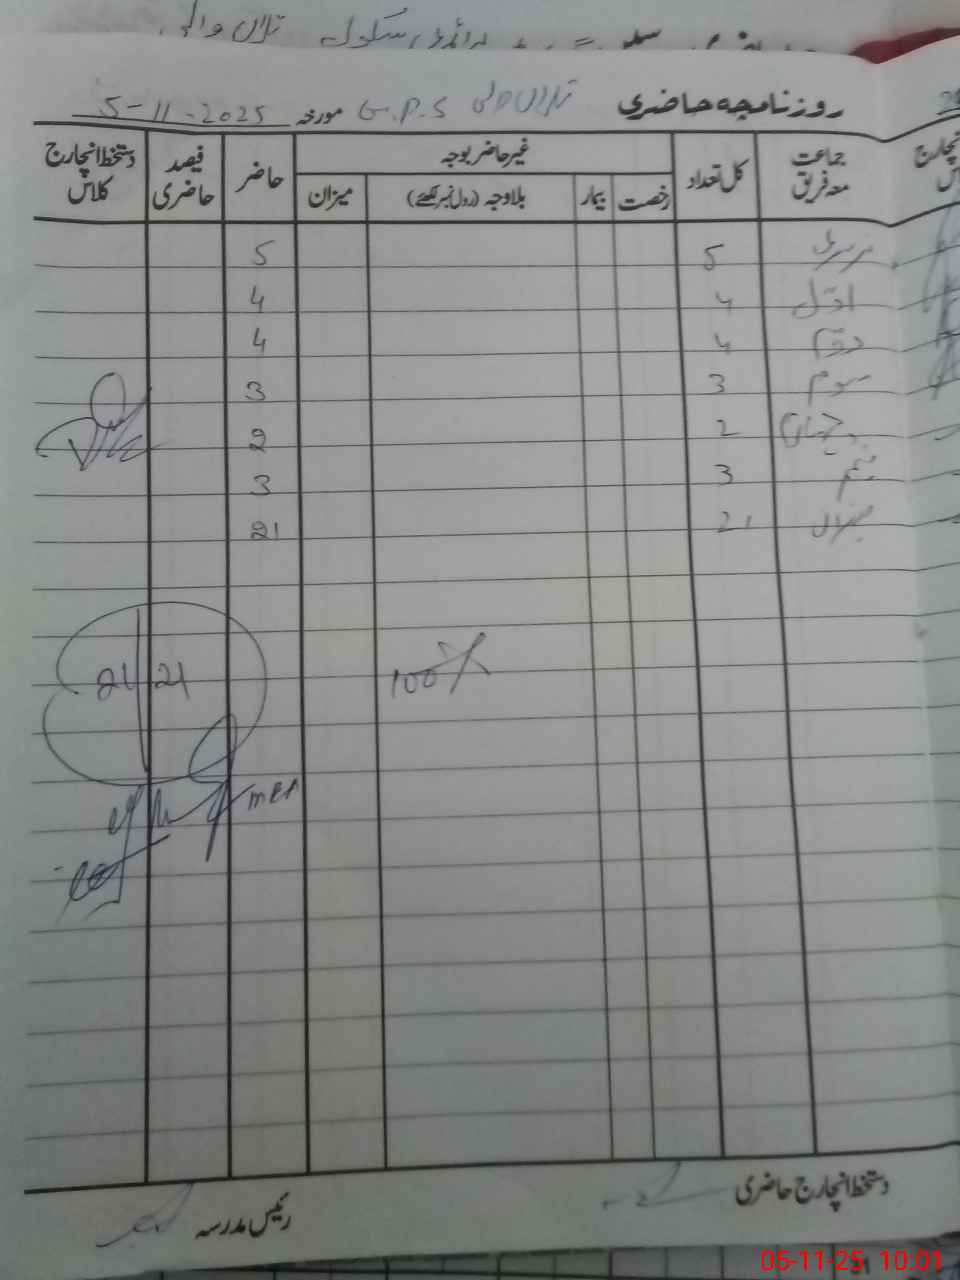 پرائمری سکول تلاں والی
روزنامچہ حاضری G.P.S تلاں والی مورخہ 5-11-2025
جماعت معہ فریق کل تعداد غیر حاضر بوجہ حاضر فیصد حاضری دستخط انچارج کلاس
رخصت بیمار بلاوجہ (رول نمبر لکھئے) میزان
نرسری 5 5
اول 4 4
دوم 4 4
سوم 3 3
چہارم 2 2
پنجم 3 3
میزان 21 21
100%
21/21
mea
دستخط انچارج حاضری
رئیس مدرسہ
05-11-25 10:01